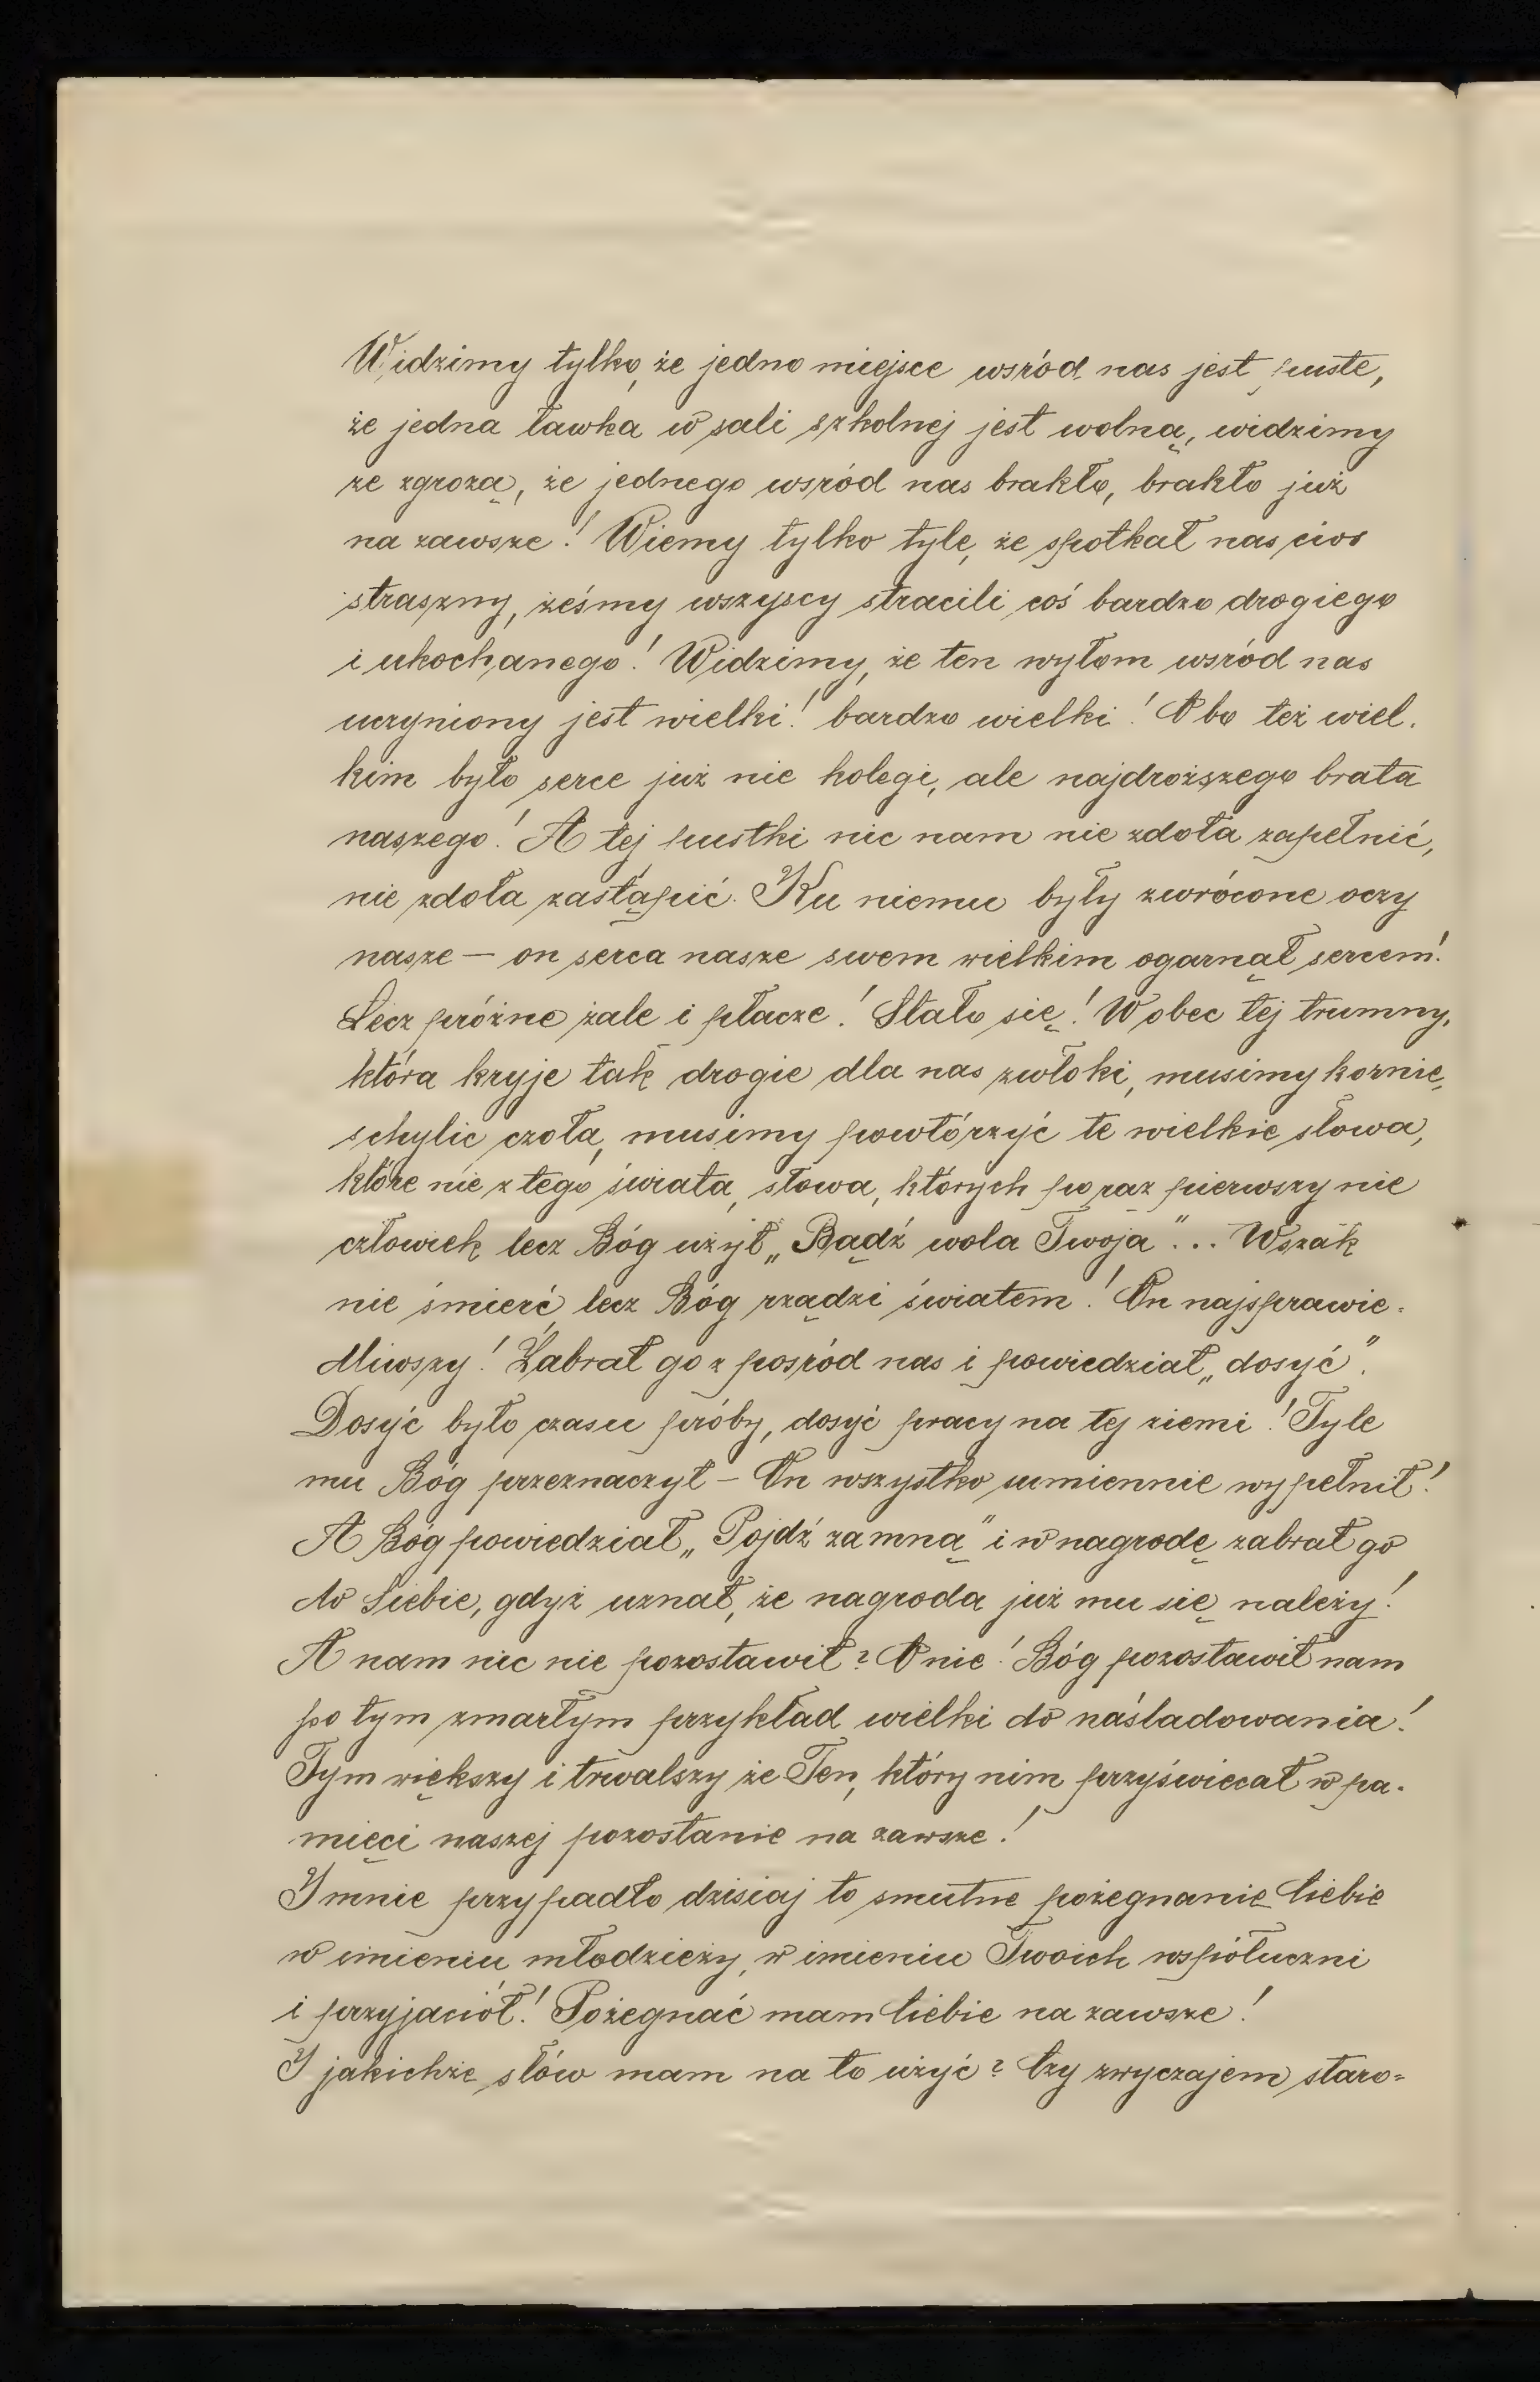 Widzimy tylko, że jedno miejsce wsród nas jest puste,
że jedna ławka w sali szkolnej jest wolną, widzimy
ze zgrozą, że jednego wsród nas brakło, brakło już
na zawsze! Wiemy tylko tyle, że spotkał nas cios
straszny, żeśmy wszyscy stracili coś bardzo drogiego
i ukochanego! Widzimy, że ten wyłom wsród nas
uczyniony jest wielki! bardzo wielki! O bo też wiel-
kim było serce już nie kolegi, ale najdroższego brata
naszego! A tej pustki nic nam nie zdoła zapełnić,
nie zdoła zastąpić. Ku niemu były zwrócone oczy
nasze — on serca nasze swem wielkim ogarnął sercem!
Lecz próżne żale i płacze! Stało się! Wobec tej trumny,
która kryje tak drogie dla nas zwłoki, musimy kornie
schylić czoła, musimy powtórzyć te wielkie słowa,
które nie z tego świata, słowa, których po raz pierwszy nie
człowiek lecz Bóg użył „Bądź wola Twoja"... Wszak
nie śmierć, lecz Bóg rządzi światem! On najsprawie-
dliwszy! Zabrał go z pośród nas i powiedział „dosyć".
Dosyć było czasu próby, dosyć pracy na tej ziemi! Tyle
mu Bóg przeznaczył — On wszystko sumiennie wypełnił!
A Bóg powiedział „Pojdź zamną" i w nagrodę zabrał go
do Siebie, gdyż uznał, że nagroda już mu się należy!
A nam nic nie pozostawił? O nie! Bóg pozostawił nam
po tym zmarłym przykład wielki do naśladowania!
Tym większy i trwalszy że Ten, który nim przyświecał w pa-
mięci naszej pozostanie na zawsze!
I mnie przypadło dzisiaj to smutne pożegnanie Ciebie
w imieniu młodzieży, w imieniu Twoich współuczni
i przyjaciół! Pożegnać mam Ciebie na zawsze!
I jakichże słów mam na to użyć? Czy zwyczajem staro-